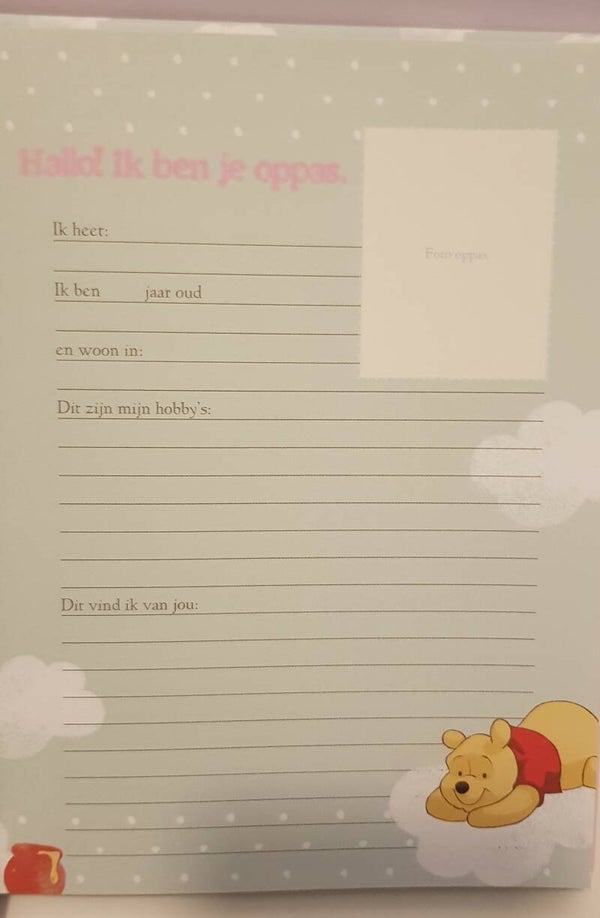 Hallo! Ik ben je oppas.
Foto oppas
Ik heet:
Ik ben jaar oud
en woon in:
Dit zijn mijn hobby's:
Dit vind ik van jou: